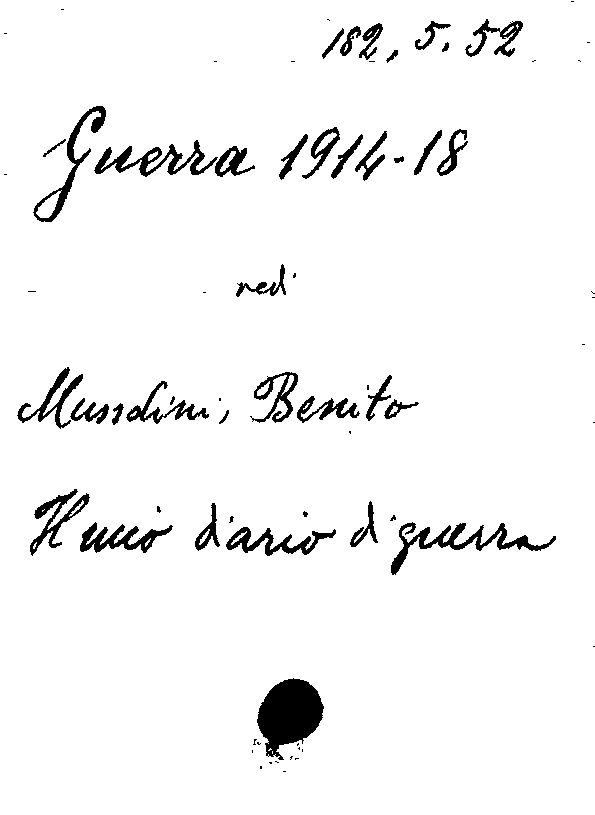 182, 5. 52
Guerra 1914-18
vedi
Mussolini, Benito
Il mio diario di guerra